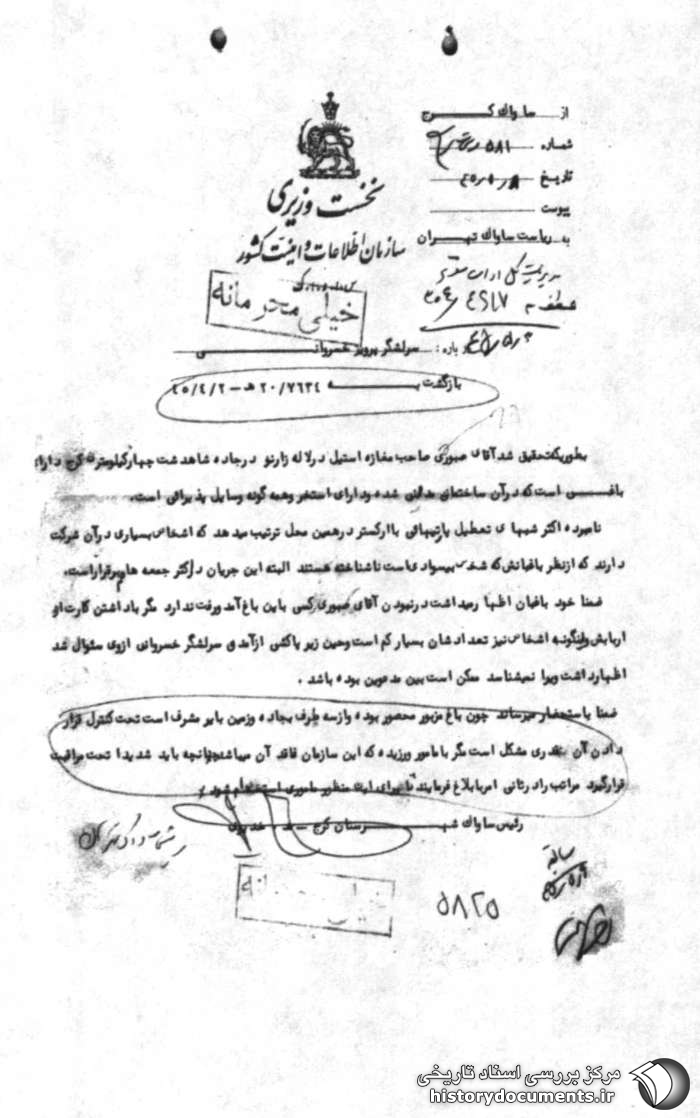 از ساواک کرج
شماره ۵۸۱
تاریخ
پیوست
به ریاست ساواک تهران
نخست وزیری
سازمان اطلاعات و امنیت کشور
خیلی محرمانه
در باره : سرلشگر پرویز خسروانی
بازگشت به ۲۰/۷۶۳۴ هـ – ۴۵/۴/۲
بطوریکه تحقیق شد آقای صبوری صاحب مغازه استیل در لاله زارنو در جاده شاهدشت چهار کیلومتری کرج دارای
باغی است که در آن ساختمانی شده و دارای استخر و همه گونه وسایل پذیرائی است.
نامبرده اکثر شبهای تعطیل پارتیهائی باارکستر در همین محل ترتیب میدهد که اشخاص بسیاری در آن شرکت
دارند که از نظر باغبانش که شخص بیسوادی است ناشناخته هستند البته این جریان در اکثر جمعه ها هم برقرار است.
ضمنا خود باغبان اظهار میداشت در نبودن آقای صبوری کسی باین باغ آمد و رفت ندارد مگر با داشتن کارت از
اربابش و اینگونه اشخاص نیز تعدادشان بسیار کم است و حین زیر پاکشی از آمدن سرلشگر خسروانی از وی سئوال شد
اظهار داشت ویرا نمیشناسد ممکن است بین مدعوین بوده باشد .
ضمنا باستحضار میرساند چون باغ مزبور محصور بوده و از سه طرف بجاده و زمین بایر مشرف است تحت کنترل قرار
دادن آن بقدری مشکل است مگر با مامور ورزیده که این سازمان فاقد آن میباشد چنانچه باید شدیدا تحت مراقبت
قرار گیرد مراتب را در ثانی امر بابلاغ فرمایند تا برای این منظور ماموری استخدام شود .
رئیس ساواک شهرستان کرج
۵۸۲۵
مرکز بررسی اسناد تاریخی
historydocuments.ir